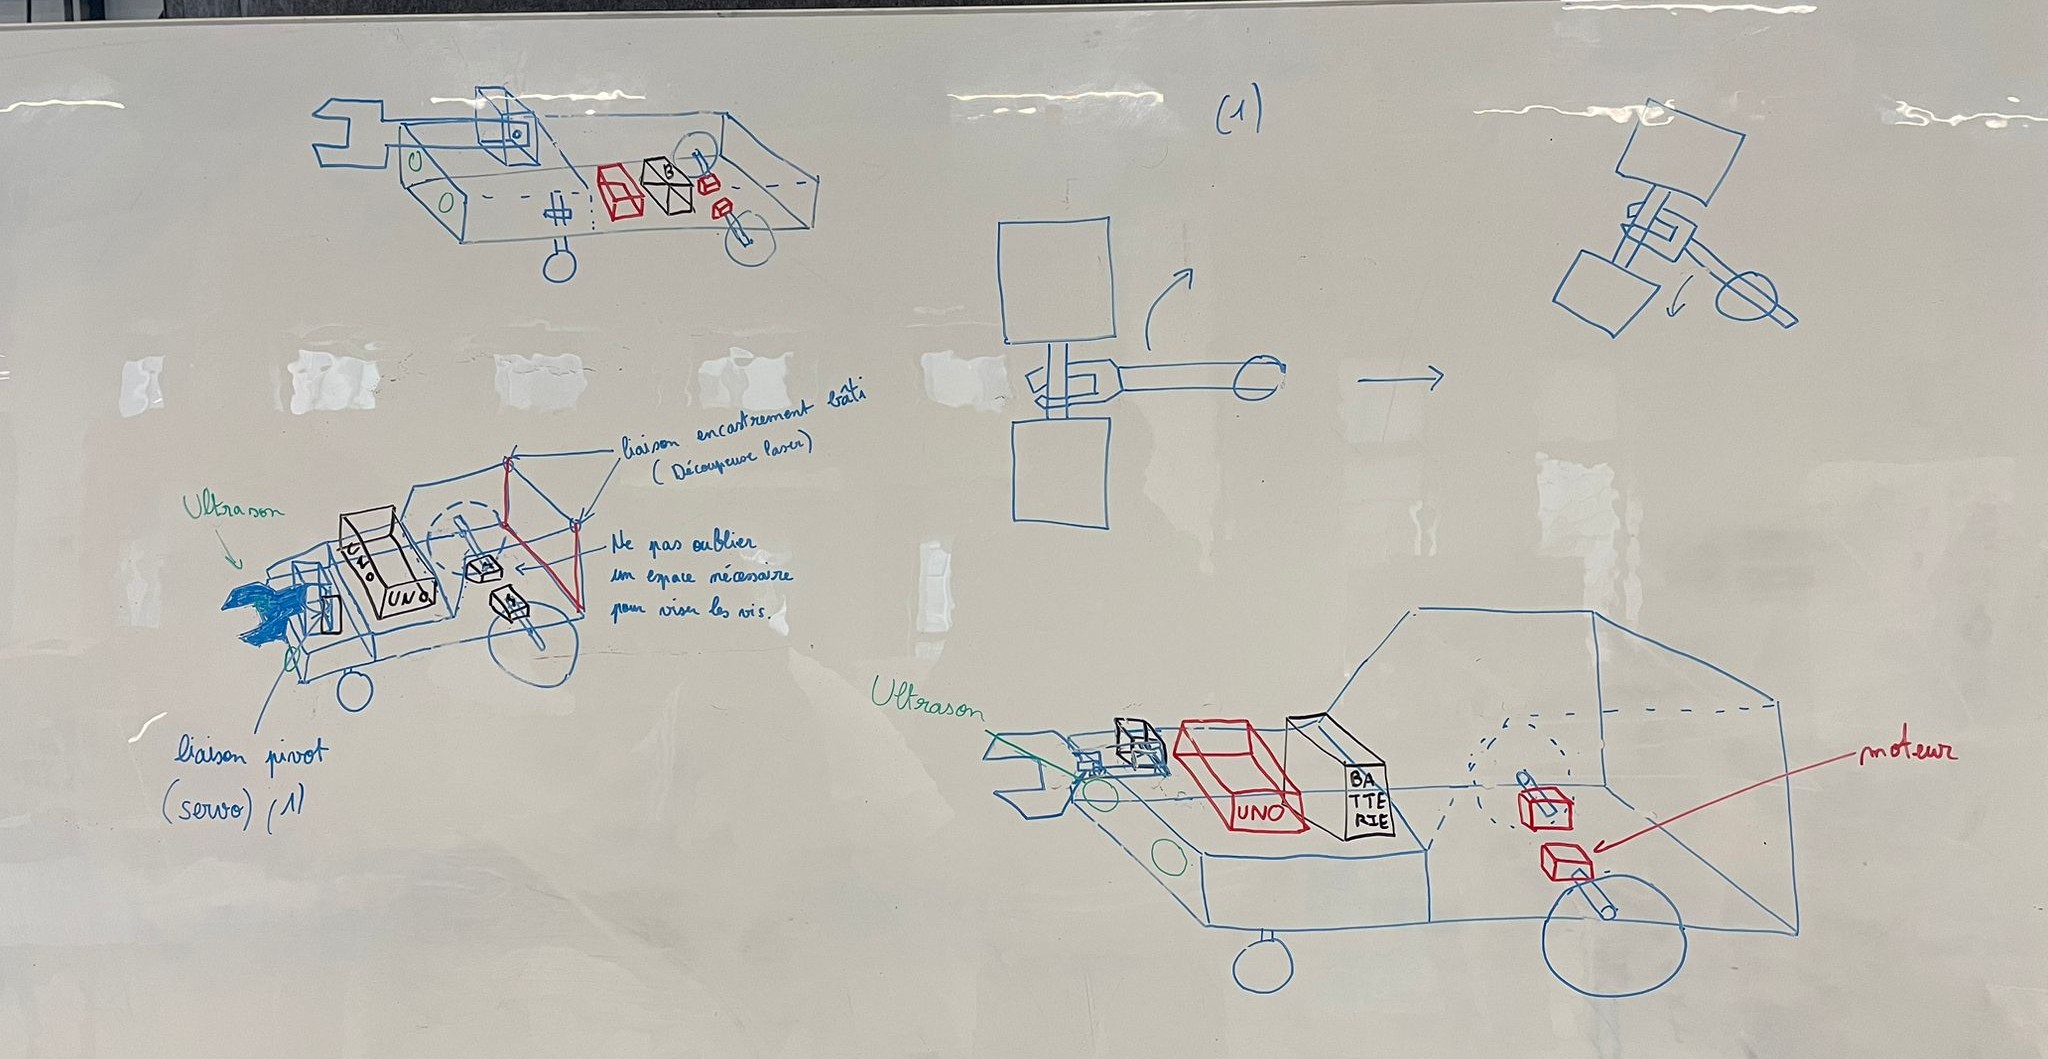 B
(1)
liaison encastrement bâti
(Découpeuse laser)
Ultrason
Ne pas oublier
un espace nécessaire
pour viser les vis.
UNO
M
M
liaison pivot
(servo) (1)
Ultrason
UNO
BA
TTE
RIE
moteur